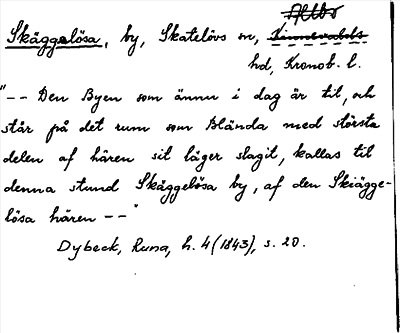 Allbo
Skäggelösa, by, Skatelövs sn, Kinnevalds
hd, Kronob. l.
"-- Den Byen som ännu i dag är til, och
står på det rum som Blända med största
delen af hären sit läger slagit, kallas til
denna stund Skäggelösa by, af den Skiägge-
lösa hären --"
Dybeck, Runa, h. 4 (1843), s. 20.